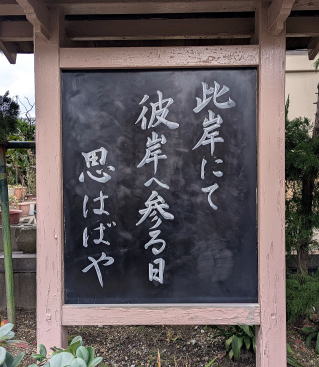 此岸にて
彼岸へ参る日
思はばや